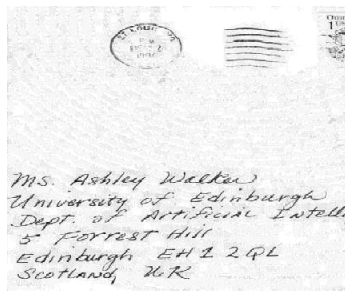 ST. LOUIS, MO
P M
1
Ms. Ashley Walker
University of Edinburgh
Dept. of Artificial Intell
5 Forrest Hill
Edinburgh EH1 2QL
Scotland UK